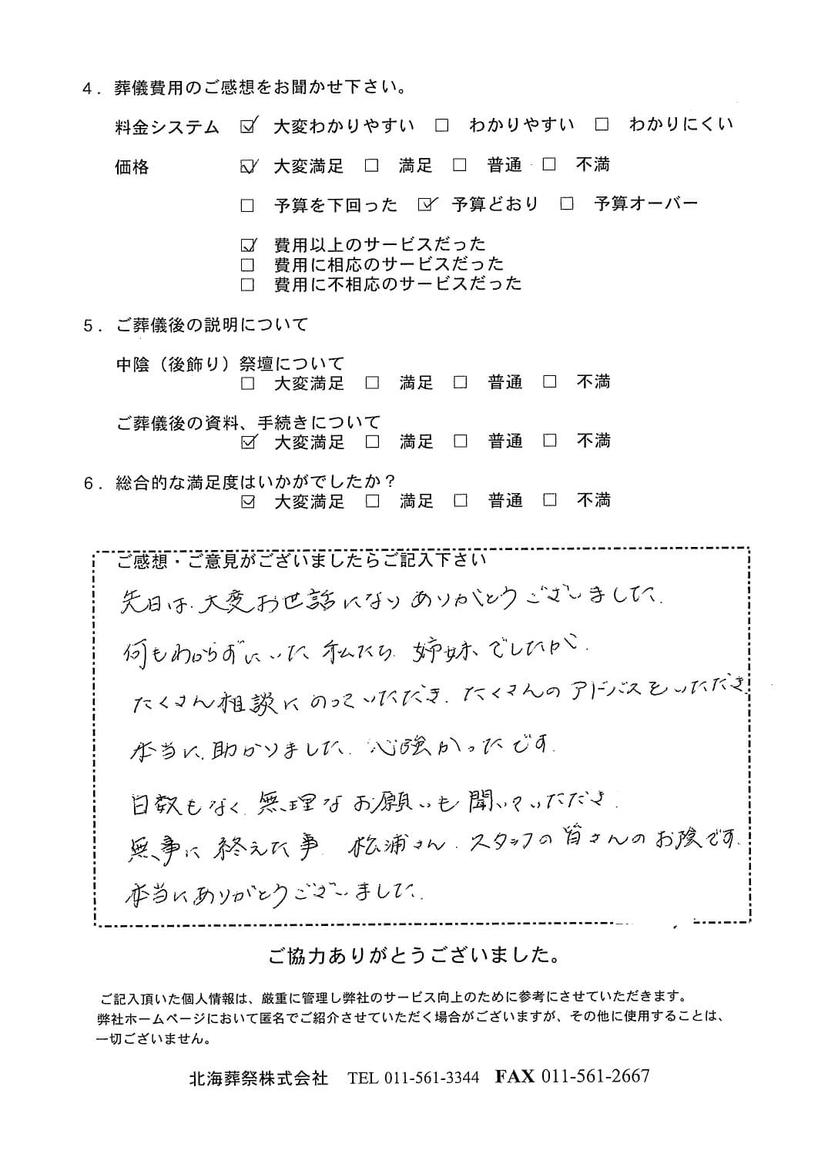 4．葬儀費用のご感想をお聞かせ下さい。
料金システム ☑ 大変わかりやすい □ わかりやすい □ わかりにくい
価格 ☑ 大変満足 □ 満足 □ 普通 □ 不満
□ 予算を下回った ☑ 予算どおり □ 予算オーバー
☑ 費用以上のサービスだった
□ 費用に相応のサービスだった
□ 費用に不相応のサービスだった
5．ご葬儀後の説明について
中陰（後飾り）祭壇について
□ 大変満足 □ 満足 □ 普通 □ 不満
ご葬儀後の資料、手続きについて
☑ 大変満足 □ 満足 □ 普通 □ 不満
6．総合的な満足度はいかがでしたか？
☑ 大変満足 □ 満足 □ 普通 □ 不満
ご感想・ご意見がございましたらご記入下さい
先日は、大変お世話になりありがとうございました。
何もわからずにいた私たち姉妹でしたが、
たくさん相談にのっていただき、たくさんのアドバスをいただき
本当に助かりました。心強かったです。
日数もなく、無理なお願いも聞いていただき、
無事に終えた事、松浦さん、スタッフの皆さんのお陰です。
本当にありがとうございました。
ご協力ありがとうございました。
ご記入頂いた個人情報は、厳重に管理し弊社のサービス向上のために参考にさせていただきます。
弊社ホームページにおいて匿名でご紹介させていただく場合がございますが、その他に使用することは、
一切ございません。
北海葬祭株式会社 TEL 011-561-3344 FAX 011-561-2667